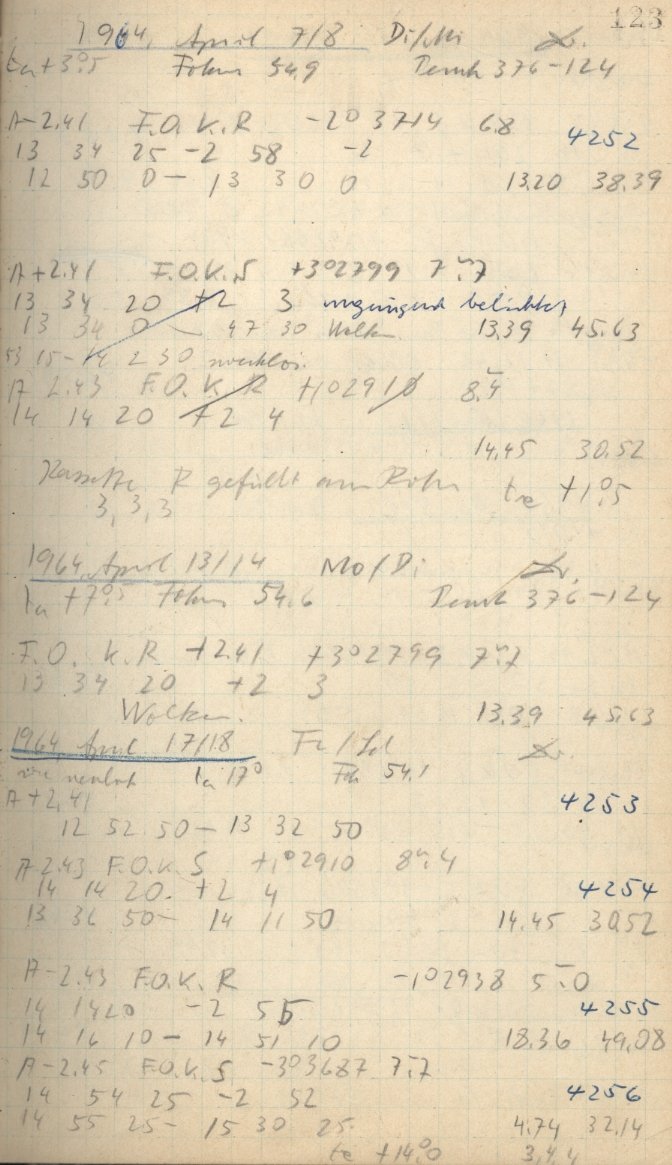 123
1964, April 7/8 Di/Mi
ta +3°.5 Fokus 54.9 376-124
A-2.41 F.O.K.R -2°3714 6.8 4252
13 34 25 -2 58 -2
12 50 0 - 13 30 0 13.20 38.39
A+2.41 F.O.K.S +3°2799 7m.7
13 34 20 +2 3 ungenügend belichtet
13 34 0 - 47 30 Wolken 13.39 45.63
53 15 - 14 2 30 zwecklos.
A 2.43 F.O.K.R +1°2910 8.4
14 14 20 +2 4
14.45 30.52
Kassette R gefüllt am Rohr te +1°.5
3, 3, 3
1964 April 13/14 Mo/Di
ta +7°.5 Fokus 54.6 376-124
F.O. K.R +2.41 +3°2799 7m.7
13 34 20 +2 3
Wolken. 13.39 45.63
1964 April 17/18 Fr/Sd
ta 17° Fok 54.1
A+2.41 4253
12 52 50 - 13 32 50
A 2.43 F.O.K.S +1°2910 8m.4
14 14 20. +2 4 4254
13 36 50 - 14 11 50 14.45 30.52
A-2.43 F.O.K.R -1°2938 5m.0
14 14 20 -2 55 4255
14 16 10 - 14 51 10 18.36 49.08
A-2.45 F.O.K.S -3°3687 7.7
14 54 25 -2 52 4256
14 55 25 - 15 30 25. 4.74 32.14
te +14°.0 3.4.4